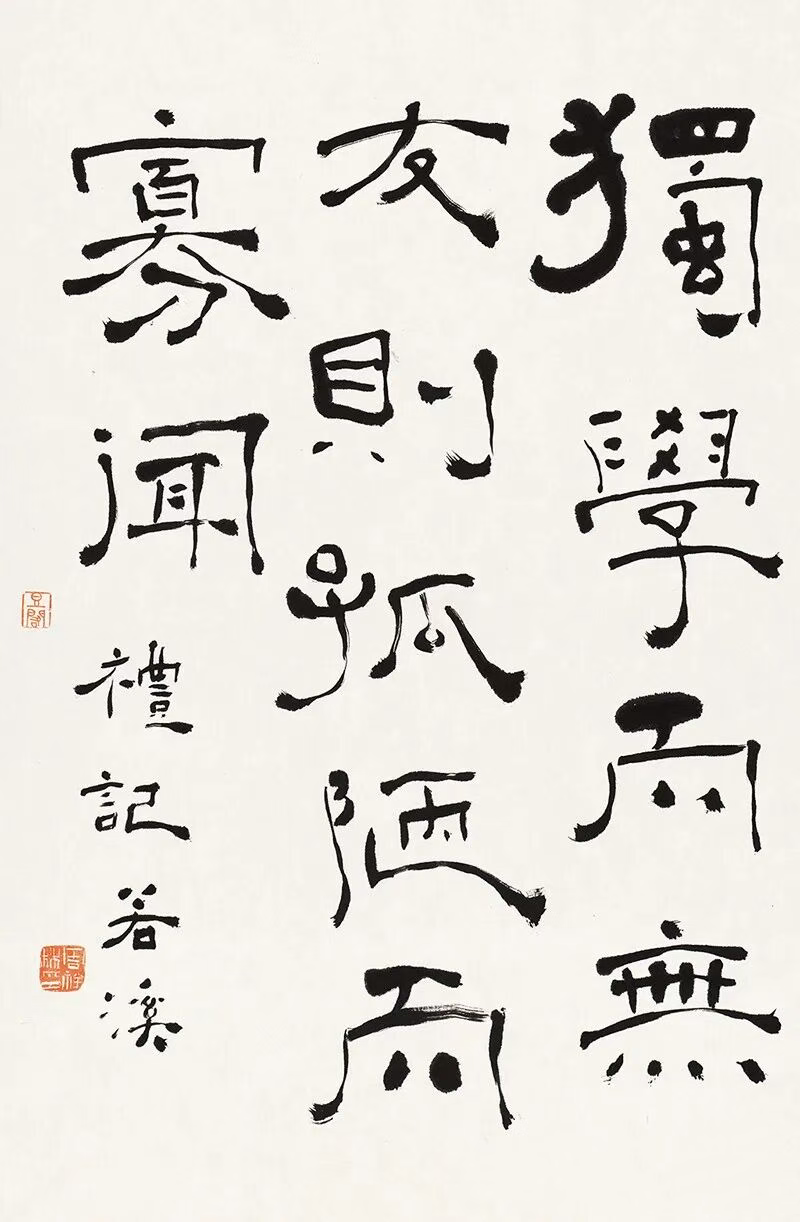 獨學而無
友則孤陋而
寡聞
禮記若溪